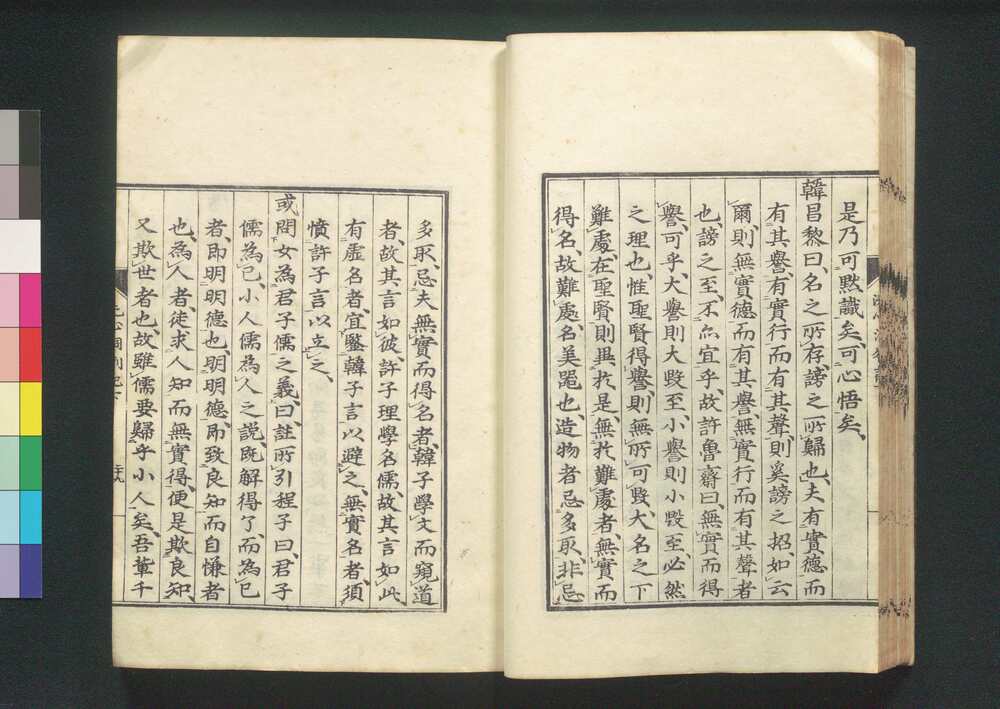 是乃可黙識矣、可心悟矣、
韓昌黎曰、名之所存謗之所歸也、夫有實德而
有其譽、有實行而有其聲、則奚謗之招、如云
爾則無實德而有其譽、無實行而有其聲者
也、謗之至、不亦宜乎、故許魯齋曰、無實而得
譽、可乎、大譽則大毀至、小譽則小毀至、必然
之理也、惟聖賢得譽、則無所可毀、大名之下
難處、在聖賢則異於是、無於難處者、無實而
得名、故難處、名美器也、造物者忌多取、非忌
多取、忌夫無實而得名者、韓子學文而窺道
者、故其言如彼、許子理學名儒、故其言如此、
有虛名者、宜鑒韓子言以避之、無實名者、須
憤許子言以立之、
或問女為君子儒之義、曰、註所引程子曰、君子
儒為己、小人儒為人之說、既解得了、而為己
者、即明明德也、明明德、即致良知而自慊者
也、為人者、徒求人知而無實得、便是欺良知、
又欺世者也、故雖儒要歸乎小人矣、吾輩千